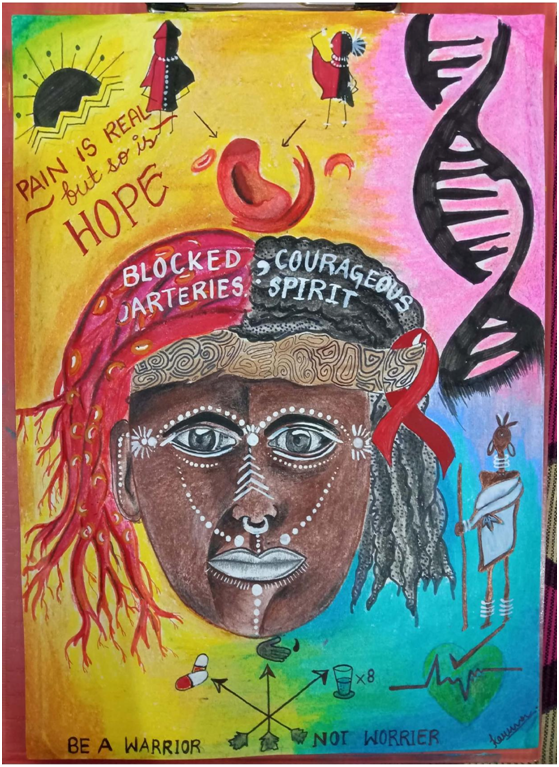 PAIN IS REAL
but so is
HOPE
BLOCKED ; COURAGEOUS
ARTERIES SPIRIT
x8
BE A WARRIOR NOT WORRIER